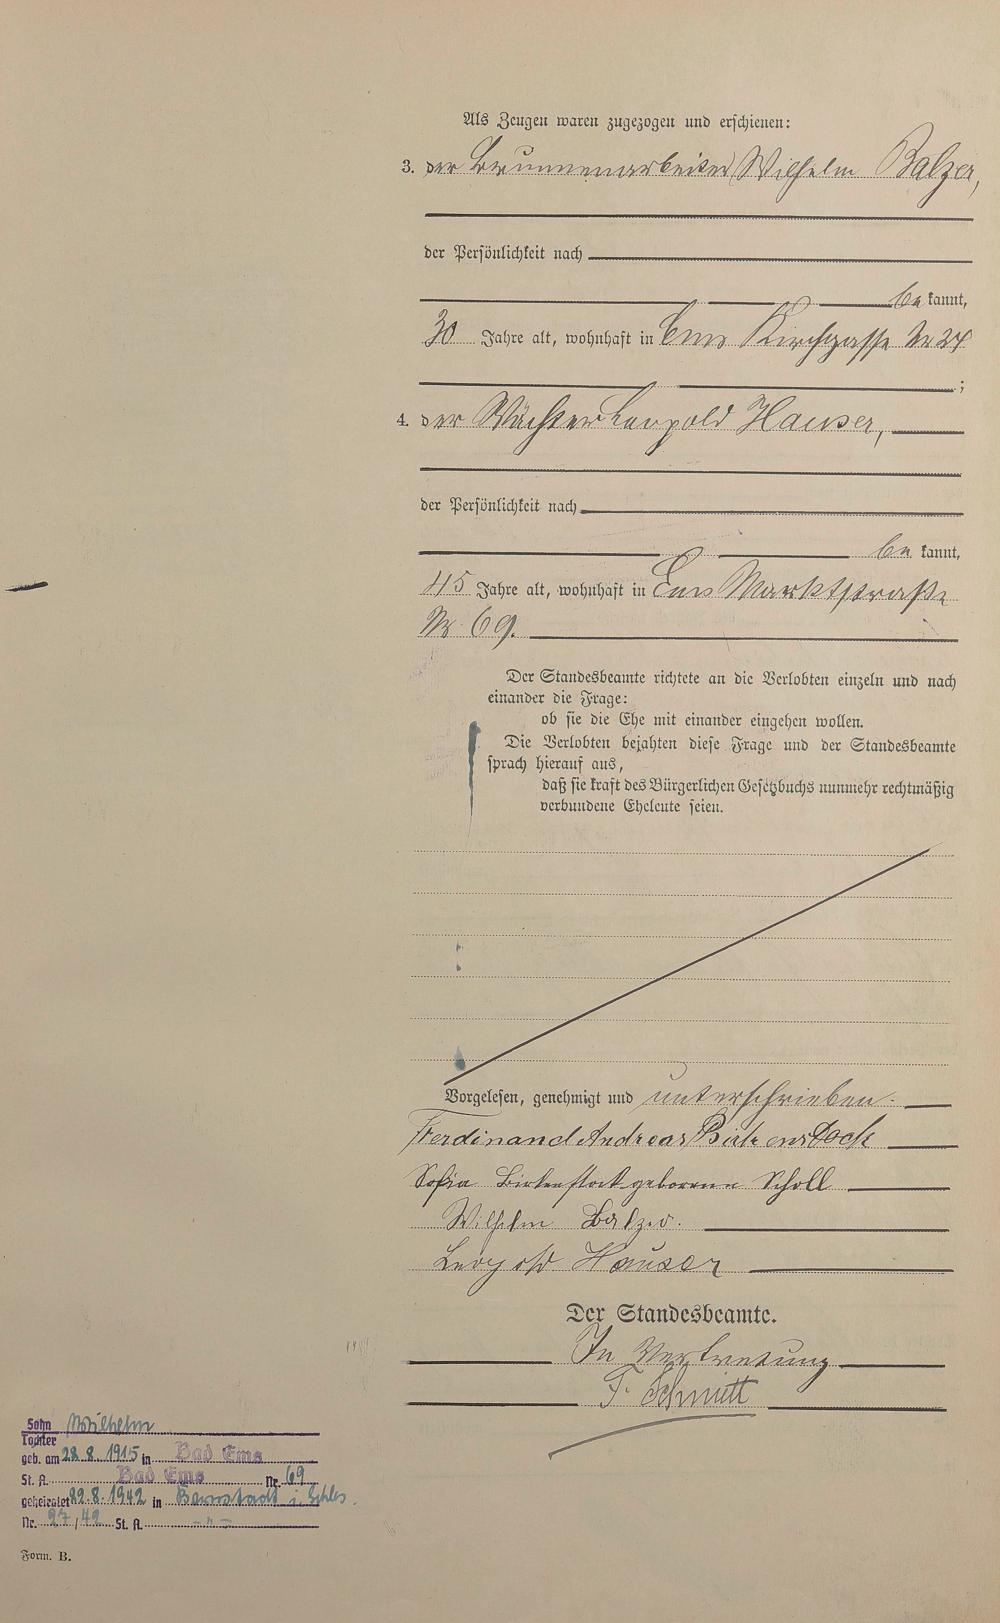 Als Zeugen waren zugezogen und erschienen:
3. der Brunnenarbeiter Wilhelm Balzer,
der Persönlichkeit nach
be kannt,
30 Jahre alt, wohnhaft in Ems Kirchgasse Nr 24
;
4. der Wächter Leopold Hauser,
der Persönlichkeit nach
be kannt,
45 Jahre alt, wohnhaft in Ems Marktstraße
Nr 69.
Der Standesbeamte richtete an die Verlobten einzeln und nach
einander die Frage:
ob sie die Ehe mit einander eingehen wollen.
Die Verlobten bejahten diese Frage und der Standesbeamte
sprach hierauf aus,
daß sie kraft des Bürgerlichen Gesetzbuchs nunmehr rechtmäßig
verbundene Eheleute seien.
Vorgelesen, genehmigt und unterschrieben.
Ferdinand Andreas Birkenstock
Sofia Birkenstock geborene Scholl
Wilhelm Balzer.
Leopold Hauser
Der Standesbeamte.
In Vertretung
F. Schmitt
Sohn Wilhelm
Tochter
geb. am 28.8.1915 in Bad Ems
St. A. Bad Ems Nr. 69
geheiratet 29.8.1942 in Bernstadt i. Schles.
Nr. 27/42 St. A. - " -
Form. B.